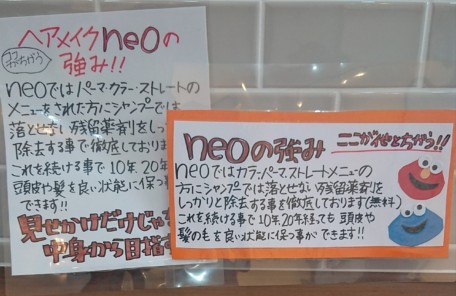 ヘアメイクneoの
強み!!
neoではパーマ・カラー・ストレートの
メニューをされた方にシャンプーでは
落とせない残留薬剤をしっ
除去する事で徹底しておりま
これを続ける事で10年、20年
頭皮や髪を良い状態に保つ
できます!!
見せかけだけじゃ
中身から目指す
neoの強み ここが他とちがう!!
neoではカラー・パーマストレートメニューの
方にシャンプーでは落とせない残留薬剤を
しっかりと除去する事を徹底しております(無料)
これを続ける事で10年、20年経ても頭皮や
髪の毛を良い状態に保つ事ができます!!